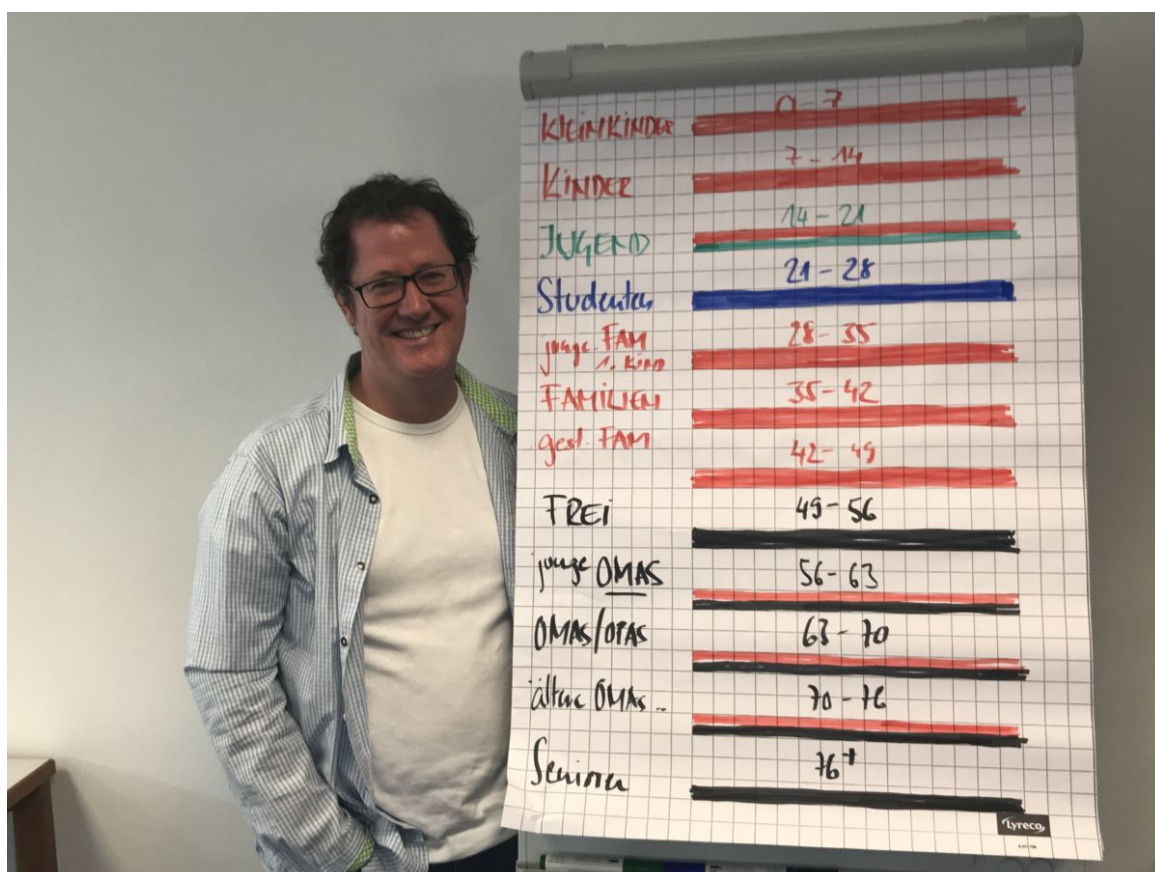 KLEINKINDER 0-7
KINDER 7-14
JUGEND 14-21
Studenten 21-28
junge FAM 28-35
1. KIND
FAMILIEN 35-42
gest. FAM 42-49
FREI 49-56
junge OMAS 56-63
OMAS/OPAS 63-70
ältere OMAS.. 70-76
Senioren 76+
Lyreco